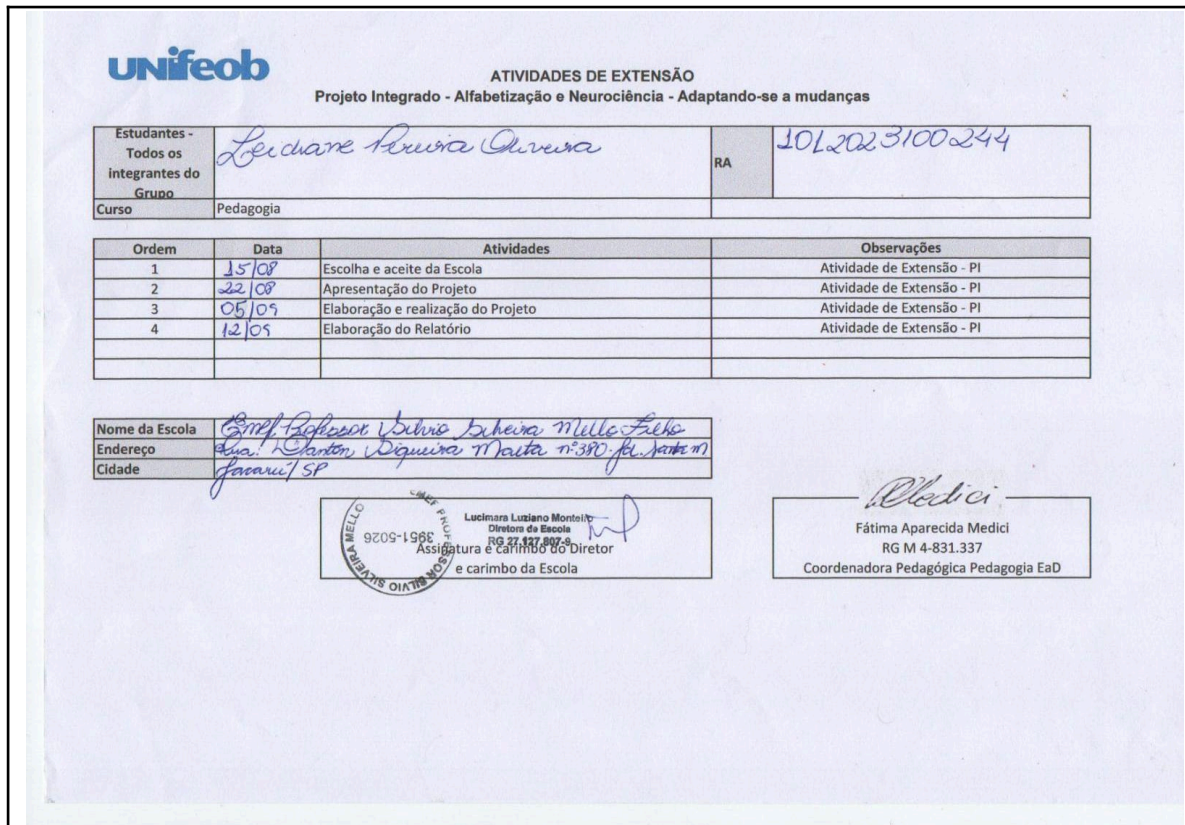 UNifeob
ATIVIDADES DE EXTENSÃO
Projeto Integrado - Alfabetização e Neurociência - Adaptando-se a mudanças
Estudantes - Todos os integrantes do Grupo Leidiane Pereira Oliveira RA 1012023100244
Curso Pedagogia
Ordem Data Atividades Observações
1 15/08 Escolha e aceite da Escola Atividade de Extensão - PI
2 22/08 Apresentação do Projeto Atividade de Extensão - PI
3 05/09 Elaboração e realização do Projeto Atividade de Extensão - PI
4 12/09 Elaboração do Relatório Atividade de Extensão - PI
Nome da Escola Emef Professor Silvio Silveira Mello Filho
Endereço Rua: Danton Siqueira Malta nº 380 - Jd.
Cidade /SP
EMEF PROFESSOR SILVIO SILVEIRA MELLO
3951-5026
Lucimara Luziano Monteiro
Diretora de Escola
RG 27.127.807-9
Assinatura e carimbo do Diretor
e carimbo da Escola
Medici
Fátima Aparecida Medici
RG M 4-831.337
Coordenadora Pedagógica Pedagogia EaD